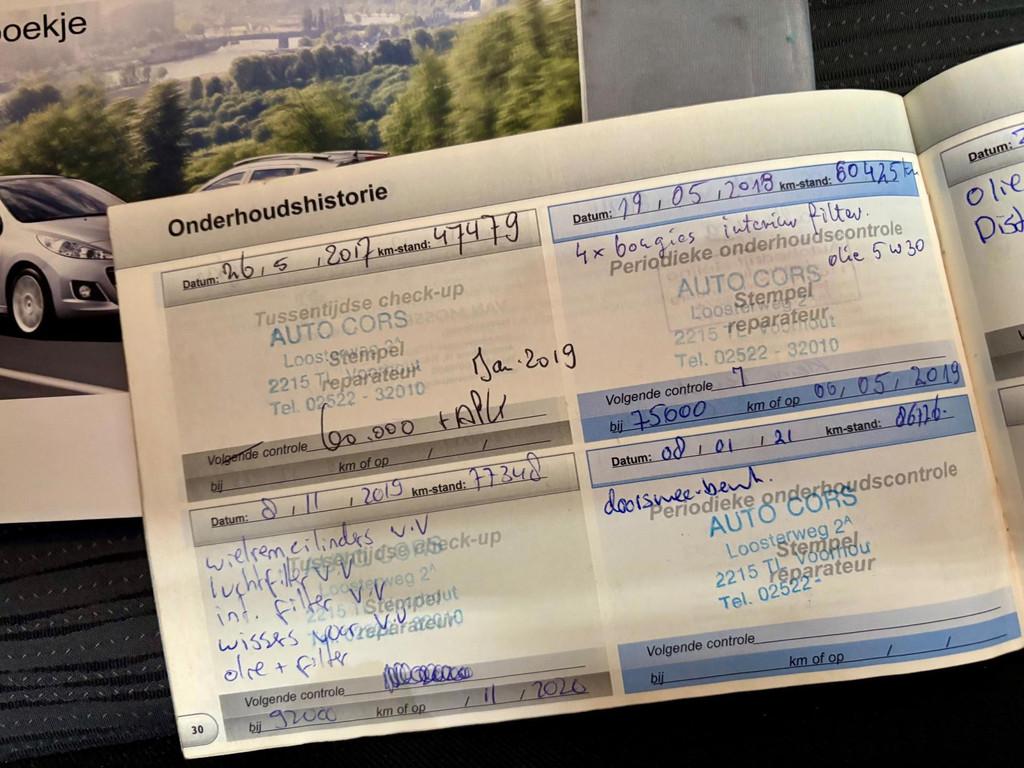 oekje
Onderhoudshistorie
Datum: 26, 5, 2017 km-stand: 47479
Tussentijdse check-up
AUTO CORS
Loosterweg 2A
Stempel
2215 TL Voorhout
reparateur
Tel. 02522 - 32010
Jan. 2019
Volgende controle 60.000 + APK
bij km of op / /
Datum: 19, 05, 2018 km-stand: 60425 km
4x bougies interieur filter.
Periodieke onderhoudscontrole
olie 5w30
AUTO CORS
Loosterweg 2A
Stempel
2215 TL Voorhout
reparateur
Tel. 02522 - 32010
Volgende controle
bij 75000 km of op 06, 05, 2019
Datum: 8, 11, 2019 km-stand: 77348
wielremcilinders v.v
Tussentijdse check-up
luchtfilter v.v
Loosterweg 2A
int. filter v.v
Stempel
wissers voor v.v
reparateur
olie + filter
Volgende controle
bij 92000 km of op / 11, 2020
Datum: 08, 01, 21 km-stand:
Periodieke onderhoudscontrole
AUTO CORS
Loosterweg 2A
Stempel
2215 TL Voorhou
reparateur
Tel. 02522-
Volgende controle
bij km of op / /
30
Datum:
olie
Dist